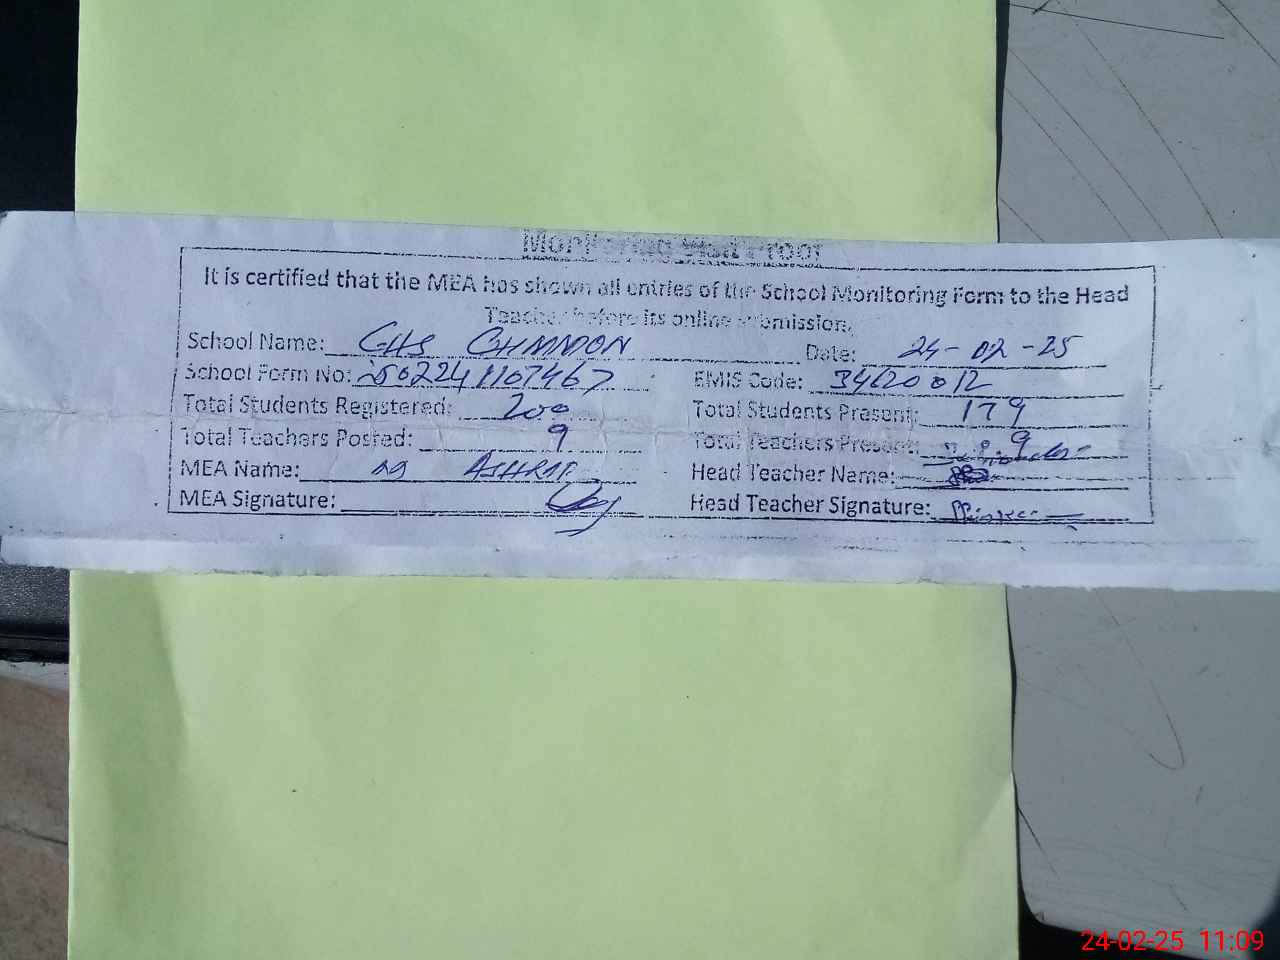 Monitoring Visit Proof
It is certified that the MEA has shown all entries of the School Monitoring Form to the Head
Teacher before its online submission.
School Name: GHS Date: 24-02-25
School Form No: 2502241107467 EMIS Code: 34120012
Total Students Registered: 200 Total Students Present: 179
Total Teachers Posted: 9 Total Teachers Present: 9
MEA Name: ASHRAF Head Teacher Name:
MEA Signature: Head Teacher Signature:
24-02-25 11:09